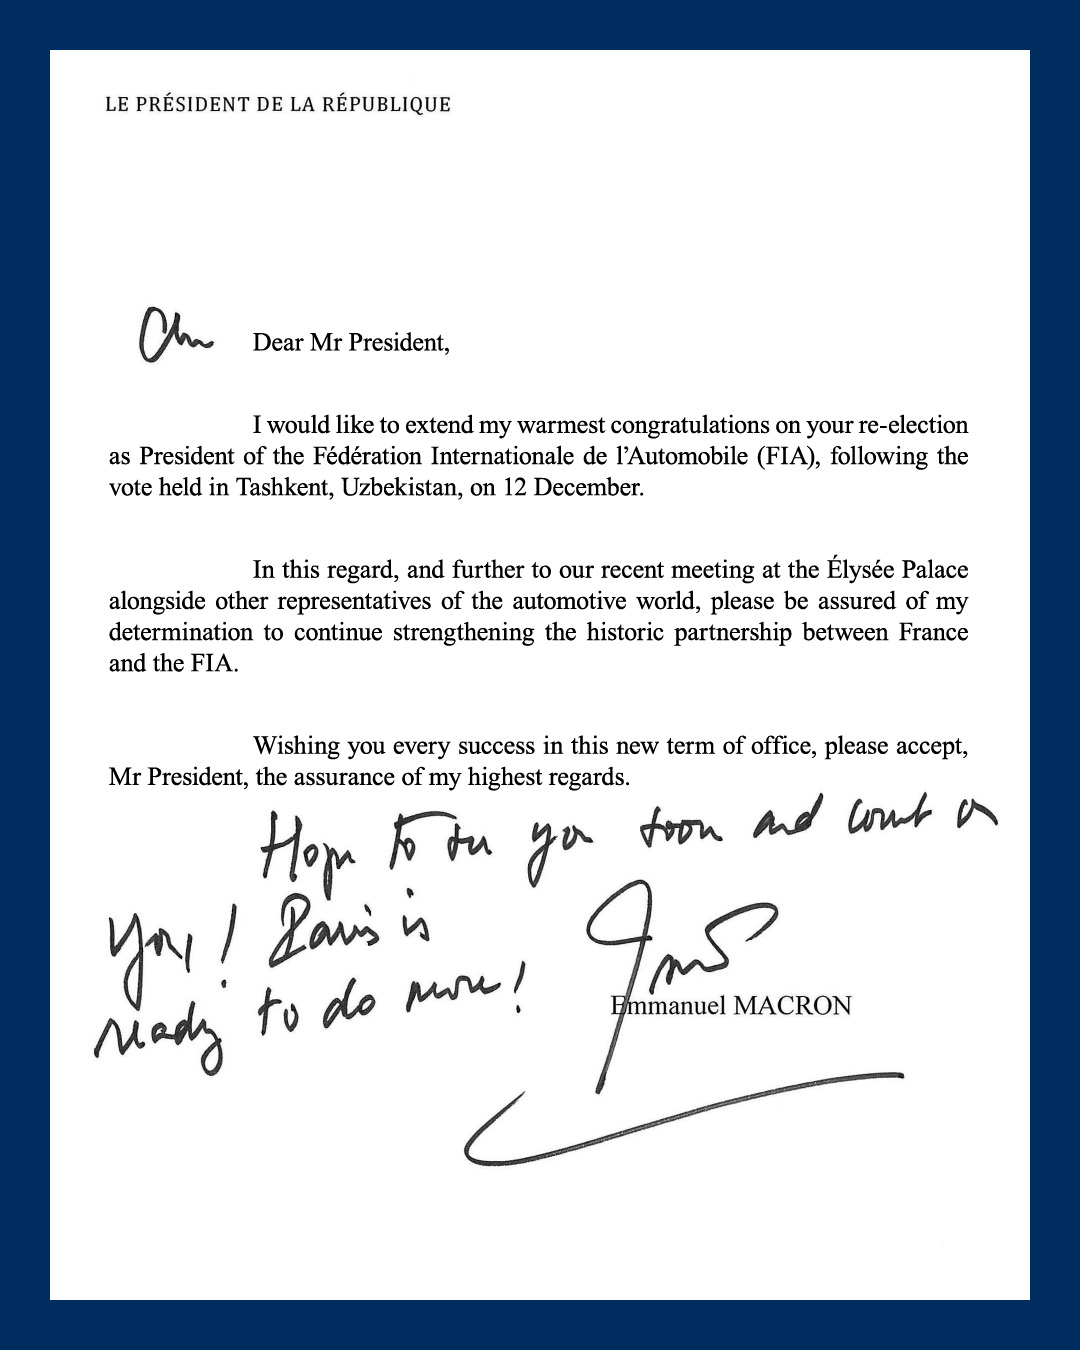 LE PRÉSIDENT DE LA RÉPUBLIQUE
Dear Mr President,
I would like to extend my warmest congratulations on your re-election
as President of the Fédération Internationale de l’Automobile (FIA), following the
vote held in Tashkent, Uzbekistan, on 12 December.
In this regard, and further to our recent meeting at the Élysée Palace
alongside other representatives of the automotive world, please be assured of my
determination to continue strengthening the historic partnership between France
and the FIA.
Wishing you every success in this new term of office, please accept,
Mr President, the assurance of my highest regards.
Hope to see you soon and count on
you! Paris is
ready to do more!
Emmanuel MACRON